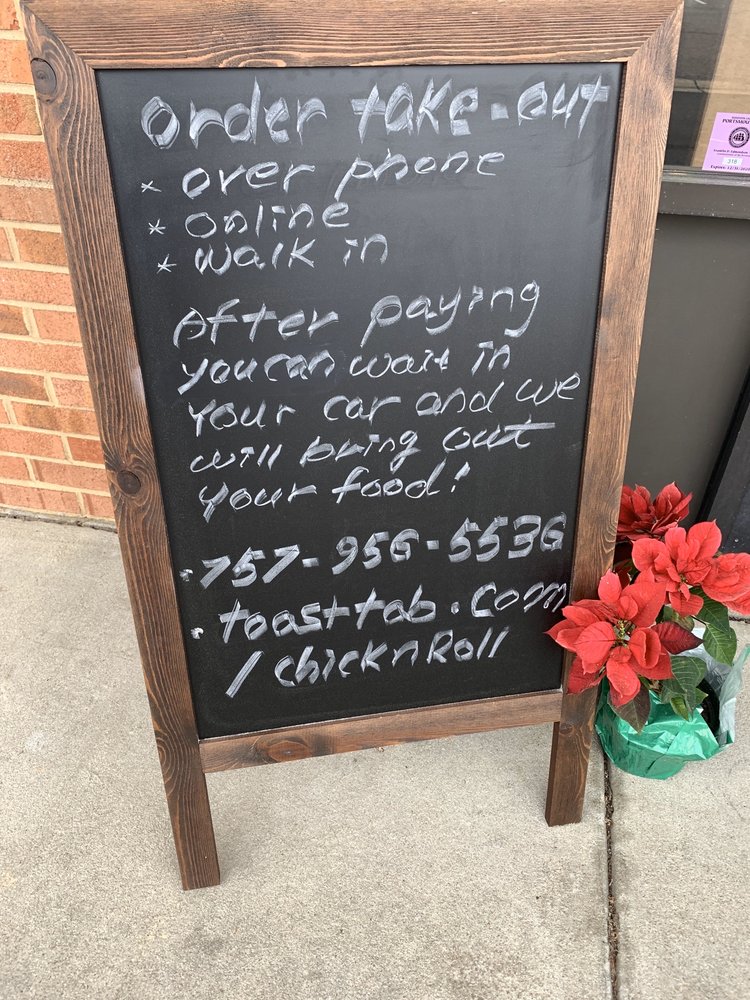 order take-out
* over phone
* online
* walk in
After paying
you can wait in
your car and we
will bring out
your food!
757-956-5536
toasttab.com
/chicknRoll
PORTSMOUTH
318
Expires: 12/31/2020